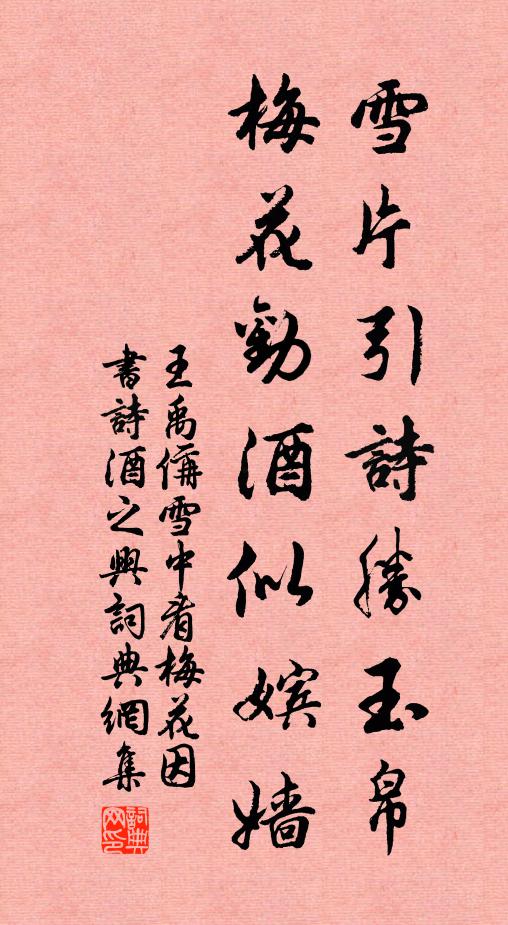 雪片引詩勝玉帛
梅花勸酒似嬪嬙
王禹偁雪中看梅花因
書詩酒之興詞典網集
詞典
网印